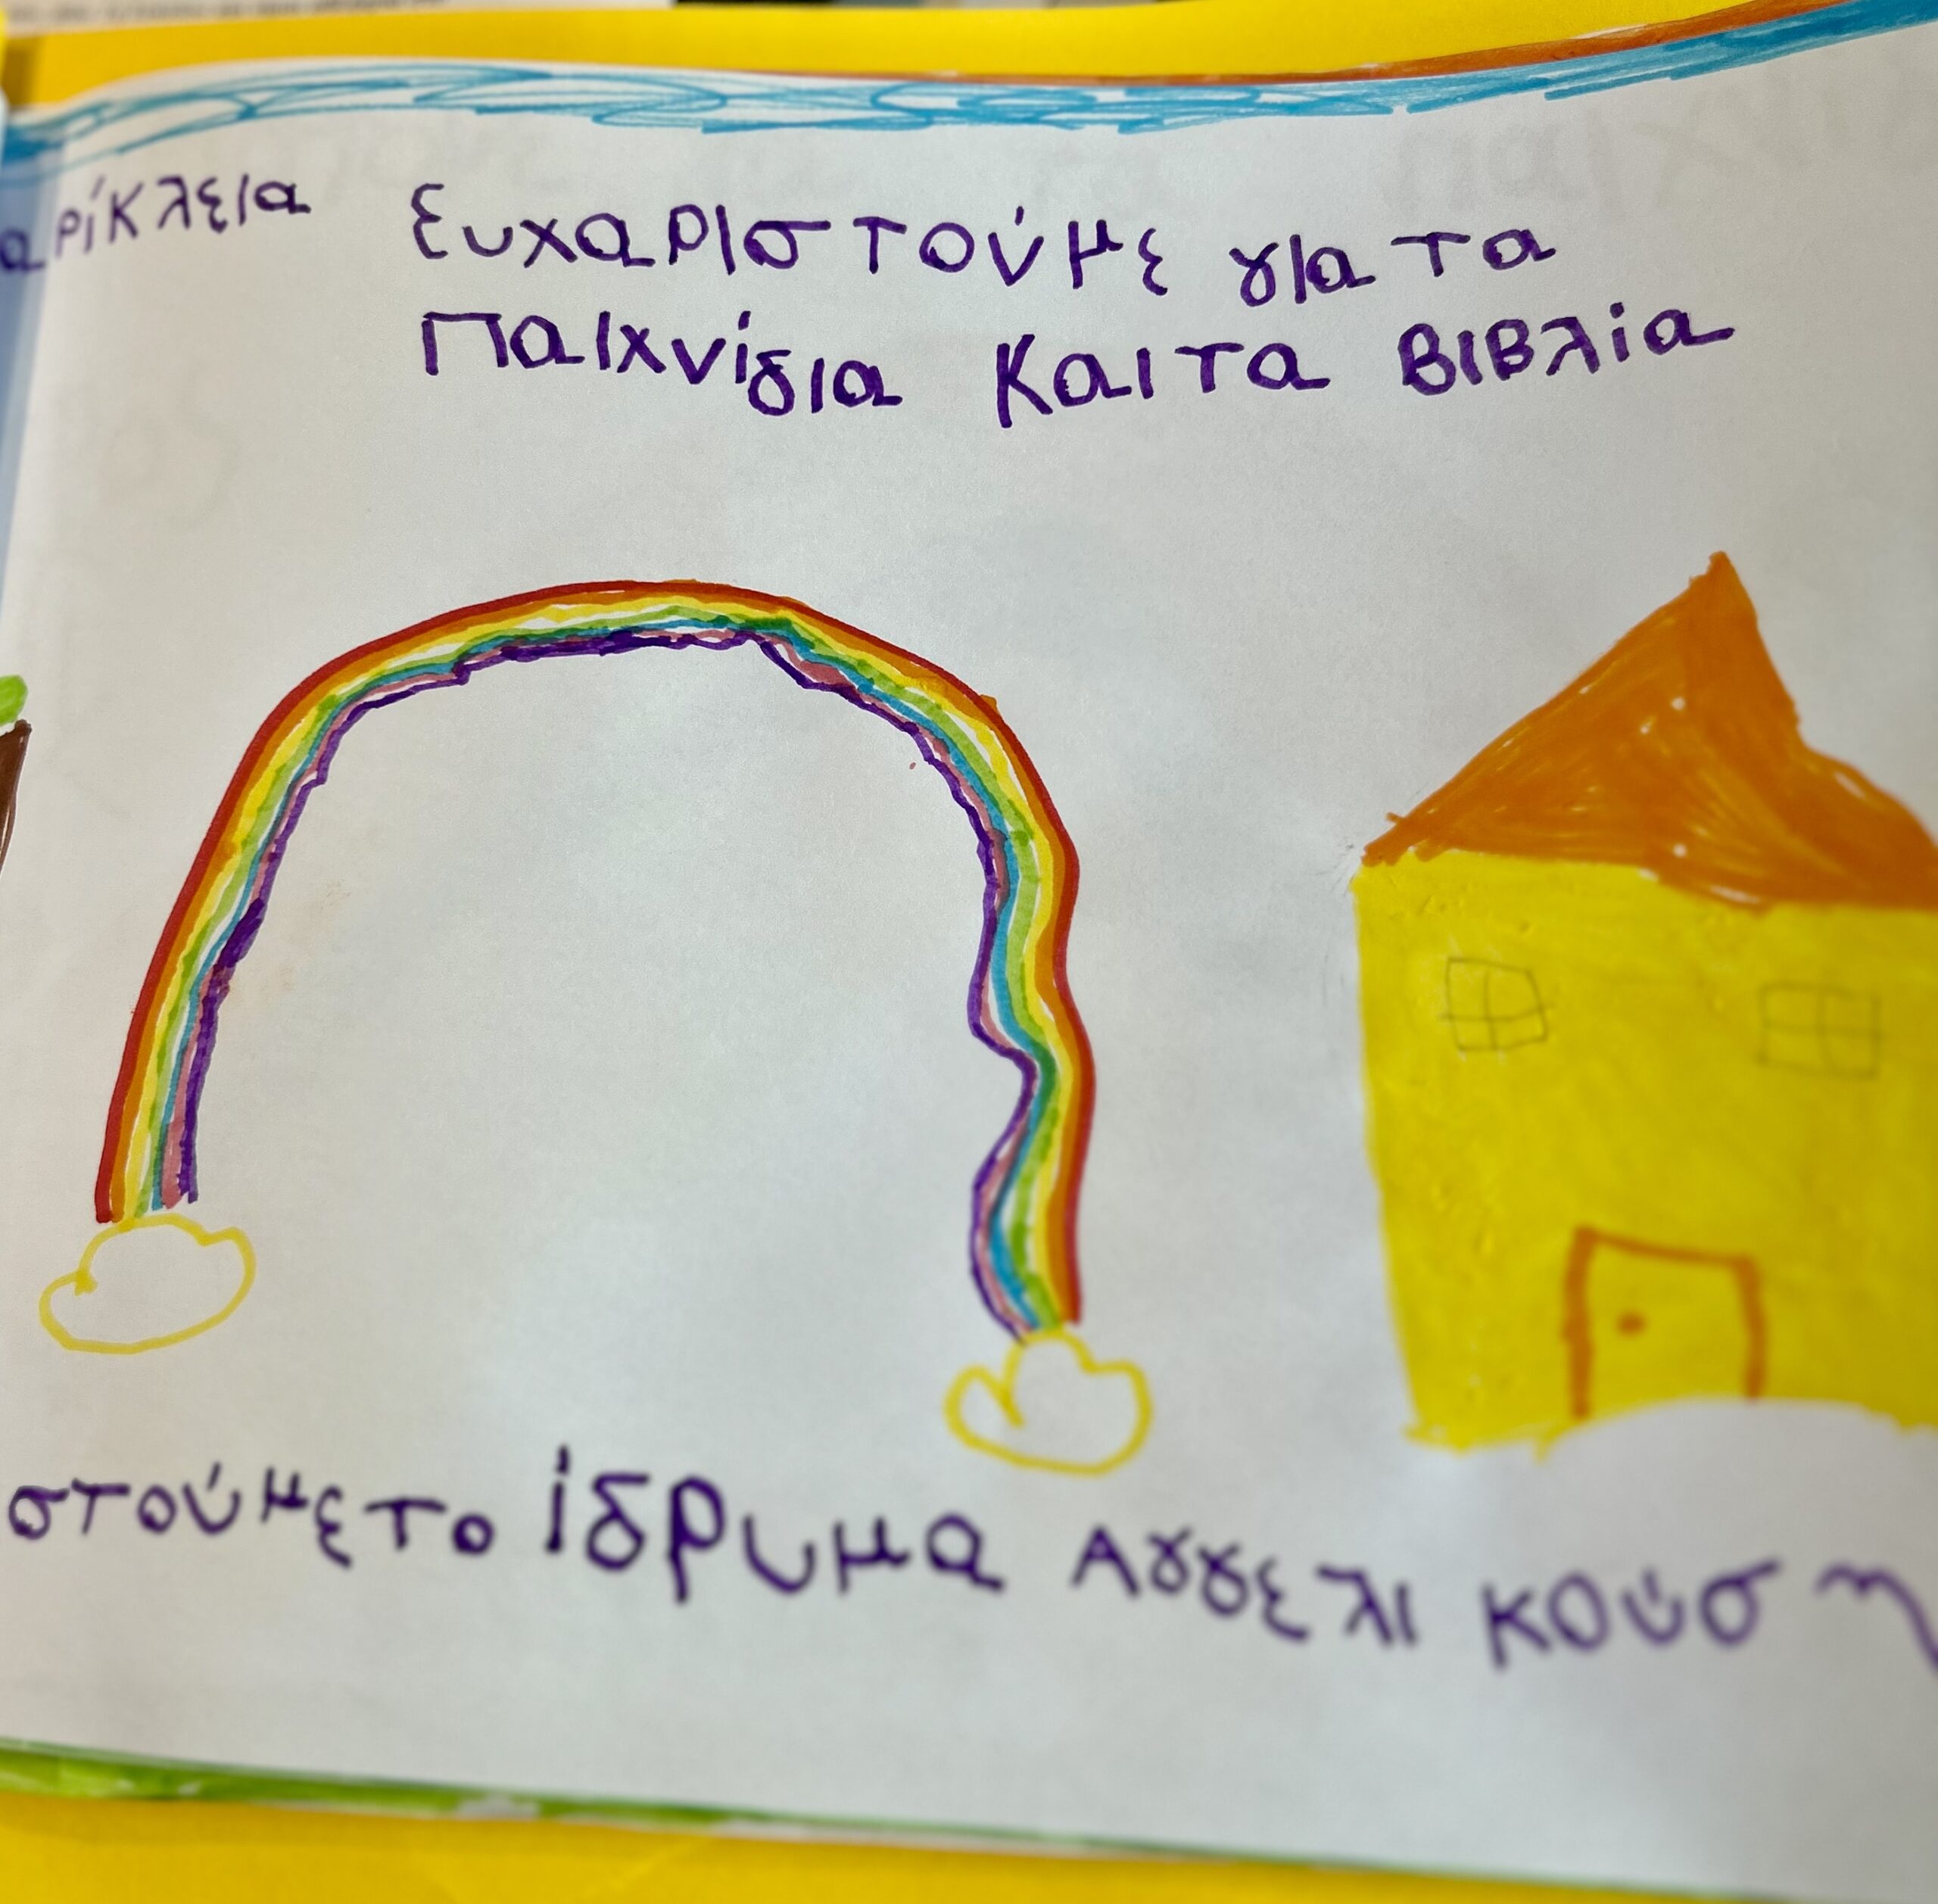 αρίκλεια
Ευχαριστούμε για τα
Παιχνίδια Και τα Βιβλία
στούμε το ίδρυμα Αγγελικούση